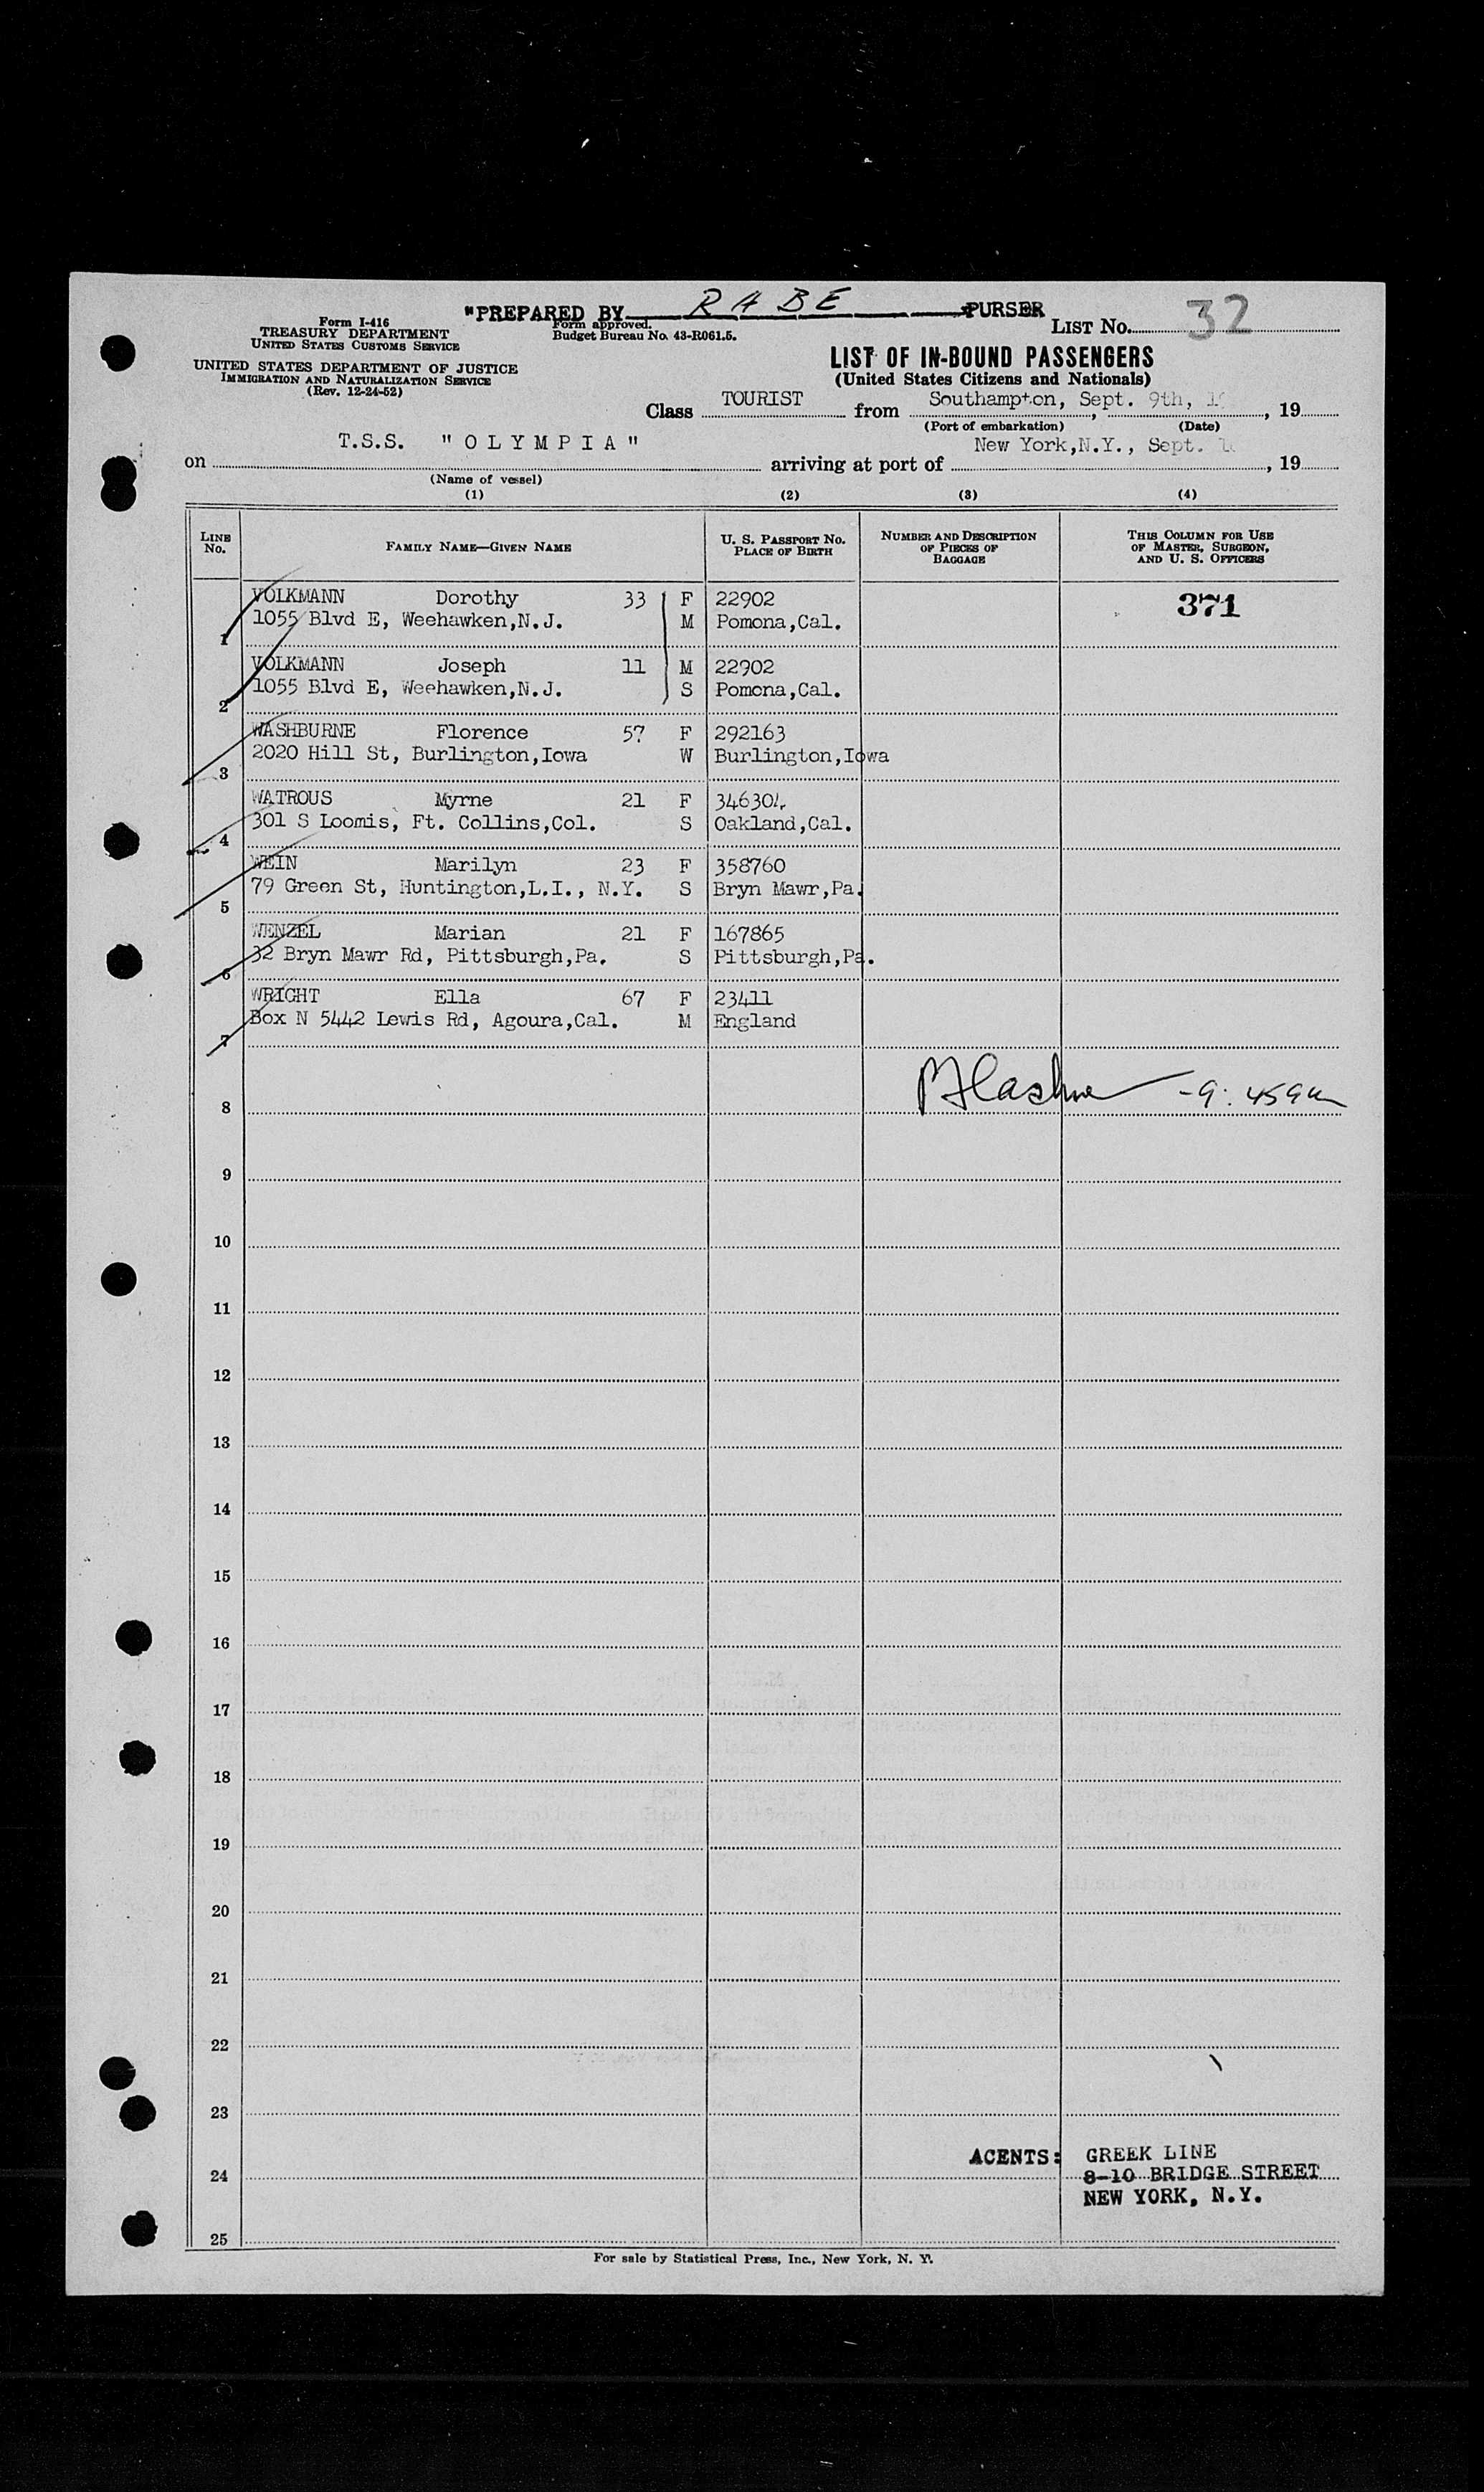 "PREPARED BY RABE PURSER
Form I-416
TREASURY DEPARTMENT
UNITED STATES CUSTOMS SERVICE
Form approved.
Budget Bureau No. 43-R061.5.
LIST No. 32
UNITED STATES DEPARTMENT OF JUSTICE
IMMIGRATION AND NATURALIZATION SERVICE
(Rev. 12-24-52)
LIST OF IN-BOUND PASSENGERS
(United States Citizens and Nationals)
Class TOURIST from Southampton, Sept. 9th, , 19
(Port of embarkation) (Date)
on T.S.S. "OLYMPIA" arriving at port of New York,N.Y., Sept. , 19
(Name of vessel)
(1) (2) (3) (4)
LINE No. FAMILY NAME—GIVEN NAME U. S. PASSPORT No. PLACE OF BIRTH NUMBER AND DESCRIPTION OF PIECES OF BAGGAGE THIS COLUMN FOR USE OF MASTER, SURGEON, AND U. S. OFFICERS
VOLKMANN Dorothy 33 F 22902 371
1 1055 Blvd E, Weehawken,N.J. M Pomona,Cal.
VOLKMANN Joseph 11 M 22902
2 1055 Blvd E, Weehawken,N.J. S Pomona,Cal.
WASHBURNE Florence 57 F 292163
3 2020 Hill St, Burlington,Iowa W Burlington,Iowa
WATROUS Myrne 21 F 346304
4 301 S Loomis, Ft. Collins,Col. S Oakland,Cal.
WEIN Marilyn 23 F 358760
5 79 Green St, Huntington,L.I., N.Y. S Bryn Mawr,Pa.
WENZEL Marian 21 F 167865
6 32 Bryn Mawr Rd, Pittsburgh,Pa. S Pittsburgh,Pa.
WRIGHT Ella 67 F 23411
7 Box N 5442 Lewis Rd, Agoura,Cal. M England
8 - 9:45am
9
10
11
12
13
14
15
16
17
18
19
20
21
22
23
AGENTS: GREEK LINE
24 8-10 BRIDGE STREET
NEW YORK, N.Y.
25
For sale by Statistical Press, Inc., New York, N. Y.